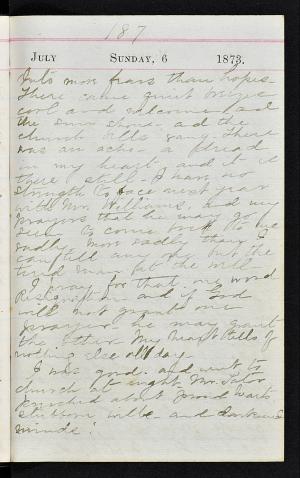 187
JULY SUNDAY, 6 1873.
into more fears than hopes
There came quiet breeze
cool and welcome and
the sun shone and the
church bells rang. There
was an ache a dread
in my heart and it is
there still. I have no
strength to face next year
with Mr. Williams, and my
prayers that he may go
seem to come back to me
sadly, more sadly than I
can tell any one but the
tired man
I pray for that, my word
Resignation and if God
will not grant one
prayer he may grant
the other. My heart tells of
nothing else all day
I was good and went to
church at night. Mr. Tator
preached about proud hearts
stubborn wills and darkened
minds!